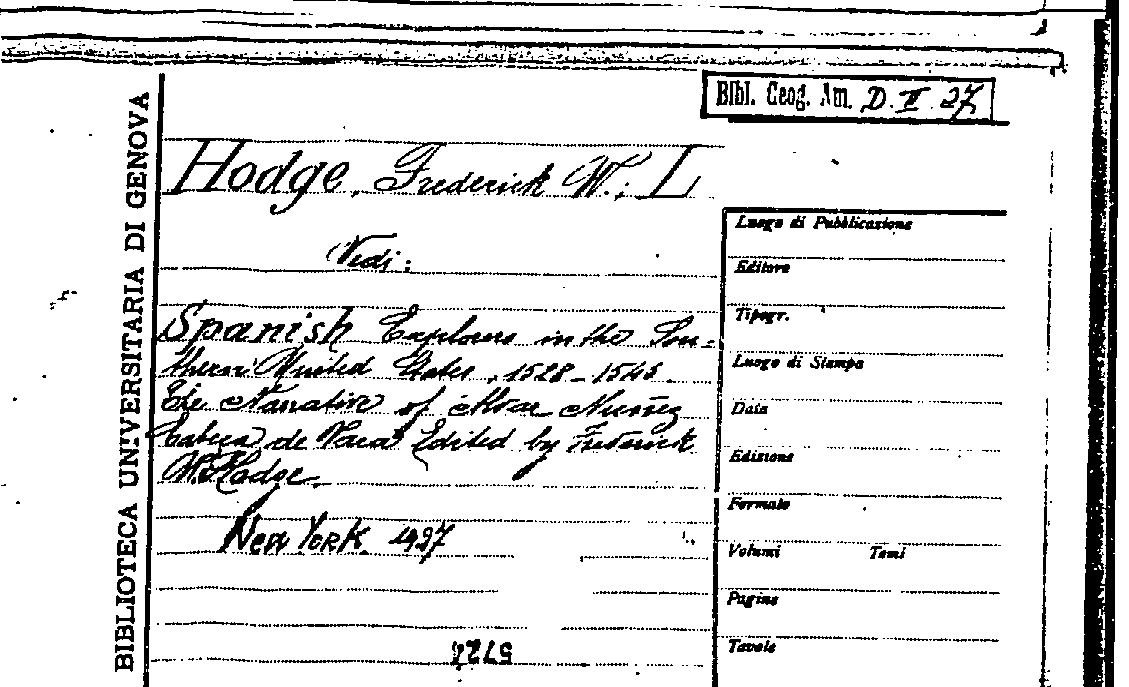 Bibl. Geog. Am. D. II. 27
BIBLIOTECA UNIVERSITARIA DI GENOVA
Hodge, Frederick W.; L
Vedi:
Spanish Explorers in the Sou-
thern United States, 1528-1543.
The Narrative of Alvar Nuñez
Cabeça de Vaca Edited by Frederick
W. Hodge.
New York. 1927
Luogo di Pubblicazione
Editore
Tipogr.
Luogo di Stampa
Data
Edizione
Formato
Volumi Tomi
Pagine
Tavole